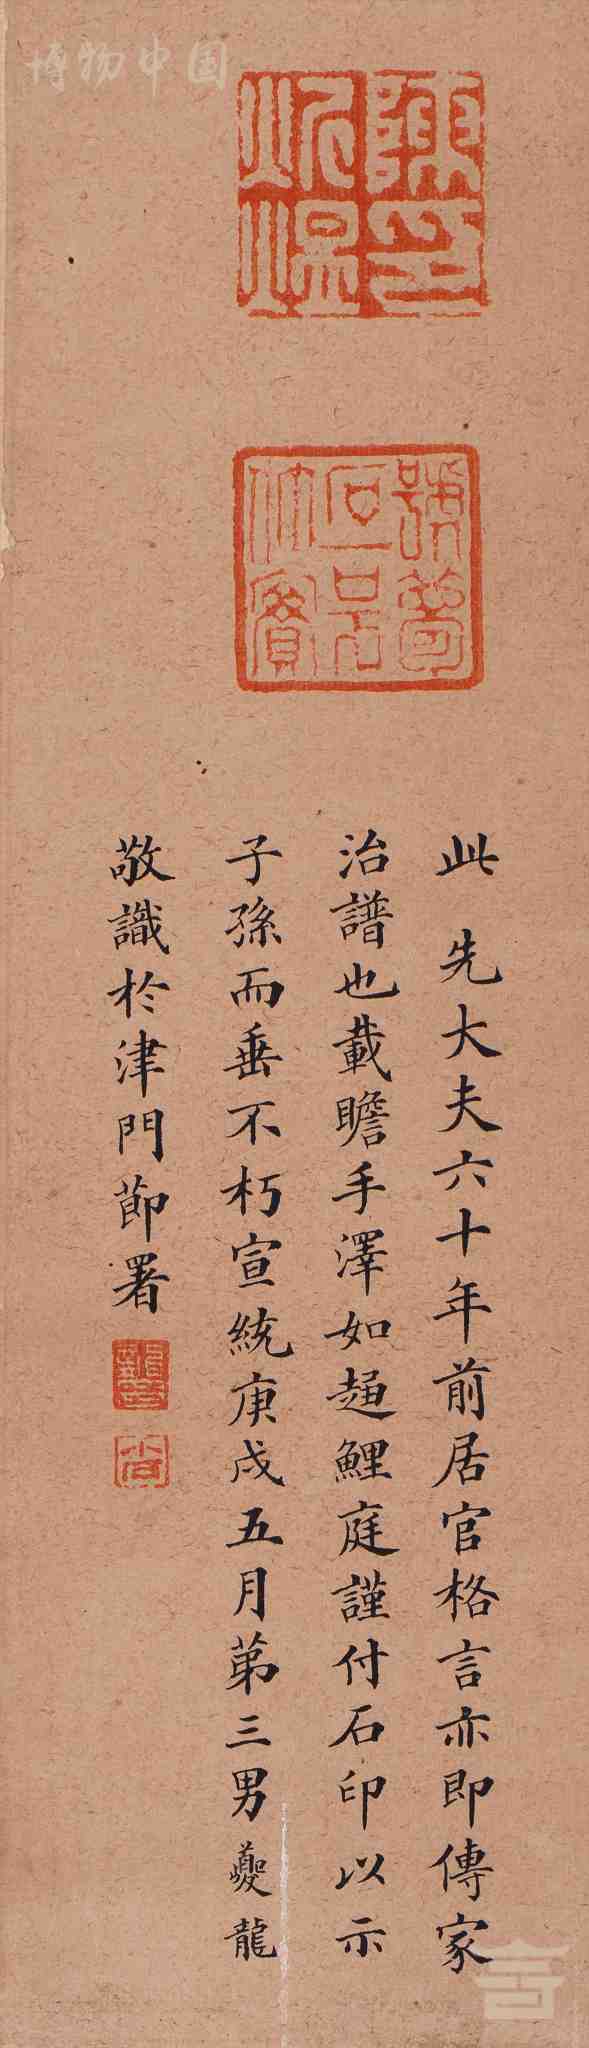 博物中国
此 先大夫六十年前居官格言亦即傳家
治譜也載瞻手澤如趨鯉庭謹付石印以示
子孫而垂不朽宣統庚戌五月第三男夔龍
敬識於津門節署